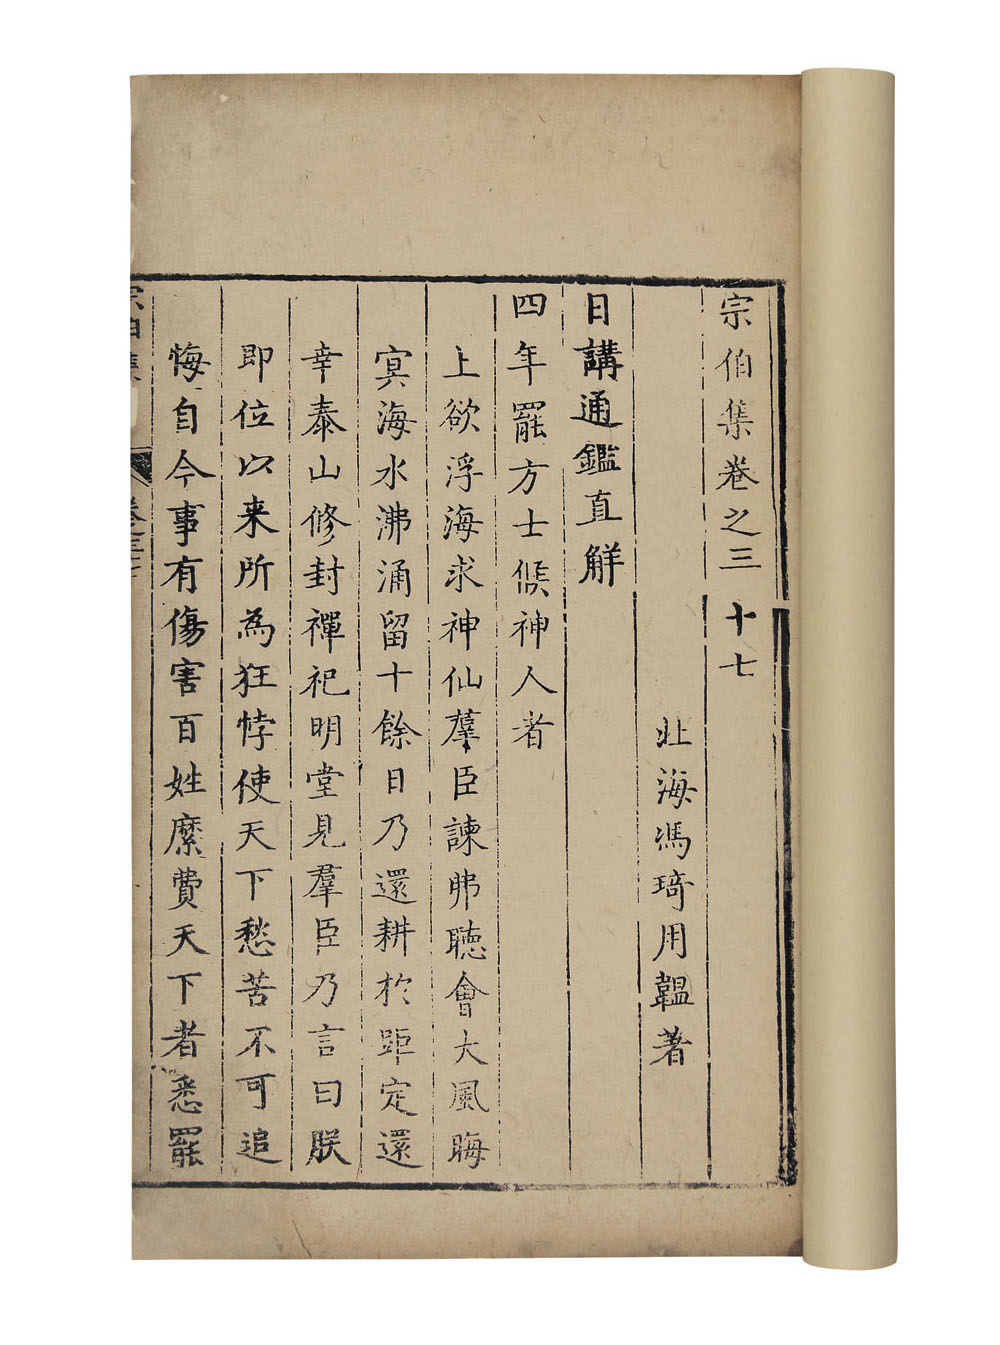 宗伯集卷之三十七
北海馮琦用韞著
日講通鑑直觧
四年罷方士候神人者
上欲浮海求神仙羣臣諫弗聽會大風晦
㝠海水沸涌留十餘日乃還耕於鉅定還
幸泰山修封禪祀明堂見羣臣乃言曰朕
即位以来所為狂悖使天下愁苦不可追
悔自今事有傷害百姓縻費天下者悉罷
宗伯集